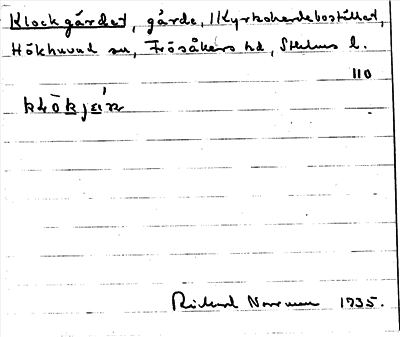 Klockgärdet, gärde, 1 Kyrkoherdebostället,
Hökhuvud sn, Frösåkers hd, Sthlms l.
110
Rickard Norrman 1935.